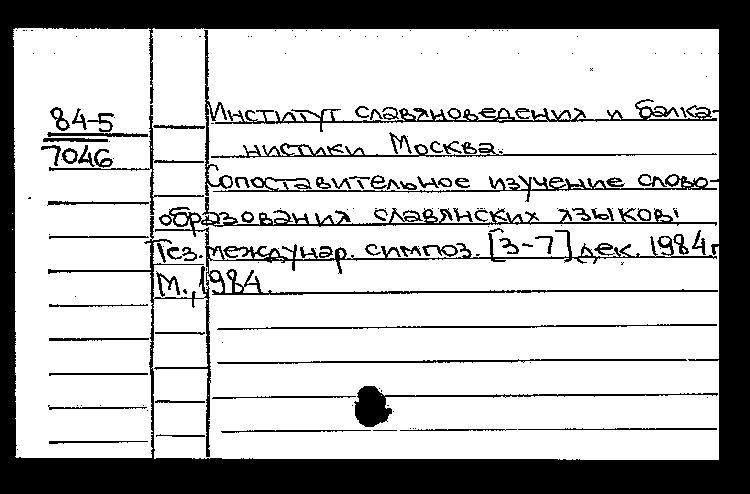 84-5
7046
Институт славяноведения и балка-
нистики Москва.
Сопоставительное изучение слово-
образования славянских языков:
Тез. междунар. симпоз. [3-7] дек. 1984г
М., 1984.